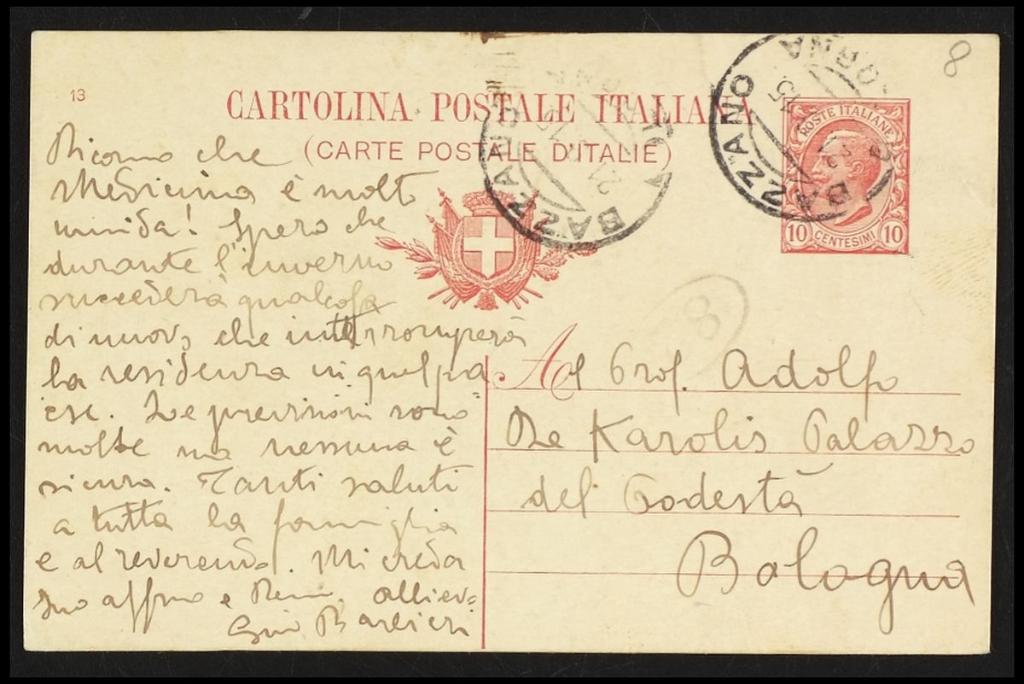 13
CARTOLINA POSTALE ITALIANA
(CARTE POSTALE D'ITALIE)
8
BAZZANO
BAZZANO
POSTE ITALIANE
10 CENTESIMI 10
8
Ricorno che
Medicina è molto
umida! Spero che
durante l'inverno
succederà qualcosa
di nuovo, che interromperà
la residenza in quel pa
ese. Le previsioni sono
molte ma nessuna è
sicura. Tanti saluti
a tutta la famiglia
e al reverendo. Mi creda
suo affmo e allievo
Gino Barbieri
Al Prof. Adolfo
De Karolis Palazzo
del Podestà
Bologna